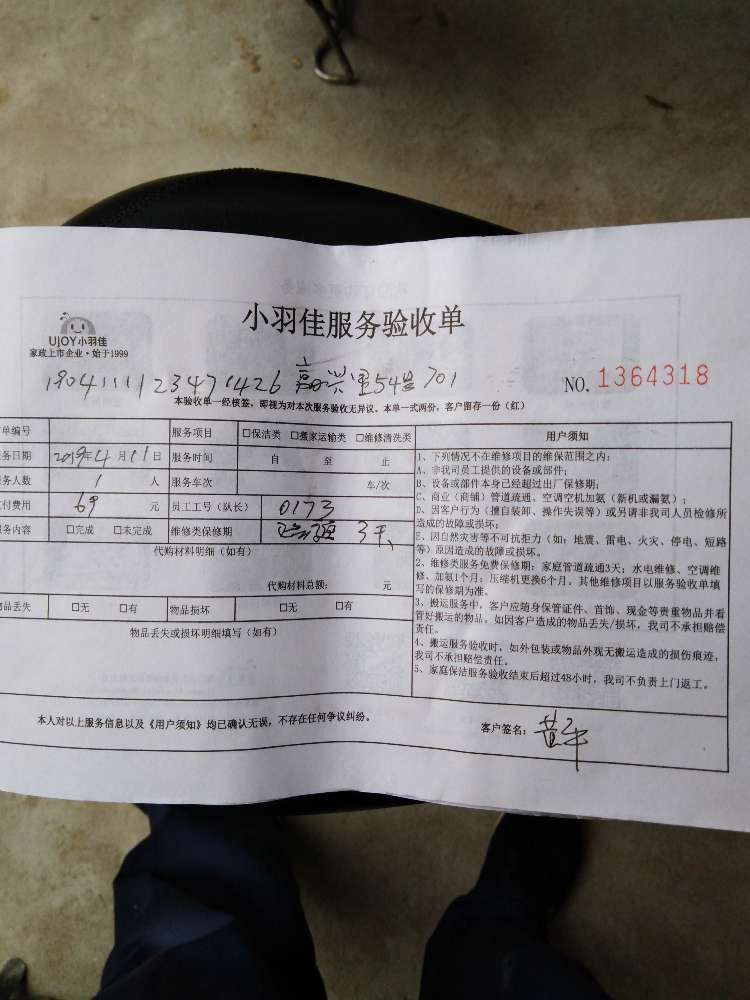 小羽佳服务验收单
UJOY小羽佳
家政上市企业·始于1999
190411112347426 嘉兴里54号701
NO. 1364318
本验收单一经核签，即视为对本次服务验收无异议。本单一式两份，客户留存一份（红）
单编号 服务项目 □保洁类 □搬家运输类 □维修清洗类
务日期 2019年4月11日 服务时间 自 至 止
务人数 1 人 服务车次 车/次
付费用 69 元 员工工号（队长） 0173
务内容 □完成 □未完成 维修类保修期 3天
代购材料明细（如有）
代购材料总额： 元
物品丢失 □无 □有 物品损坏 □无 □有
物品丢失或损坏明细填写（如有）
用户须知
1、下列情况不在维修项目的维保范围之内：
A、非我司员工提供的设备或部件；
B、设备或部件本身已经超过出厂保修期；
C、商业（商铺）管道疏通、空调空机加氨（新机或漏氨）；
D、因客户行为（擅自装卸、操作失误等）或另请非我司人员检修所
造成的故障或损坏；
E、因自然灾害等不可抗拒力（如：地震、雷电、火灾、停电、短路
等）原因造成的故障或损坏。
2、维修类服务免费保修期：家庭管道疏通3天；水电维修、空调维
修、加氨1个月；压缩机更换6个月，其他维修项目以服务验收单填
写的保修期为准。
3、搬运服务中，客户应随身保管证件、首饰、现金等贵重物品并看
管好搬运的物品。如因客户造成的物品丢失/损坏，我司不承担赔偿
责任。
4、搬运服务验收时，如外包装或物品外观无搬运造成的损伤痕迹，
我司不承担赔偿责任。
5、家庭保洁服务验收结束后超过48小时，我司不负责上门返工。
本人对以上服务信息以及《用户须知》均已确认无误，不存在任何争议纠纷。
客户签名：黄平